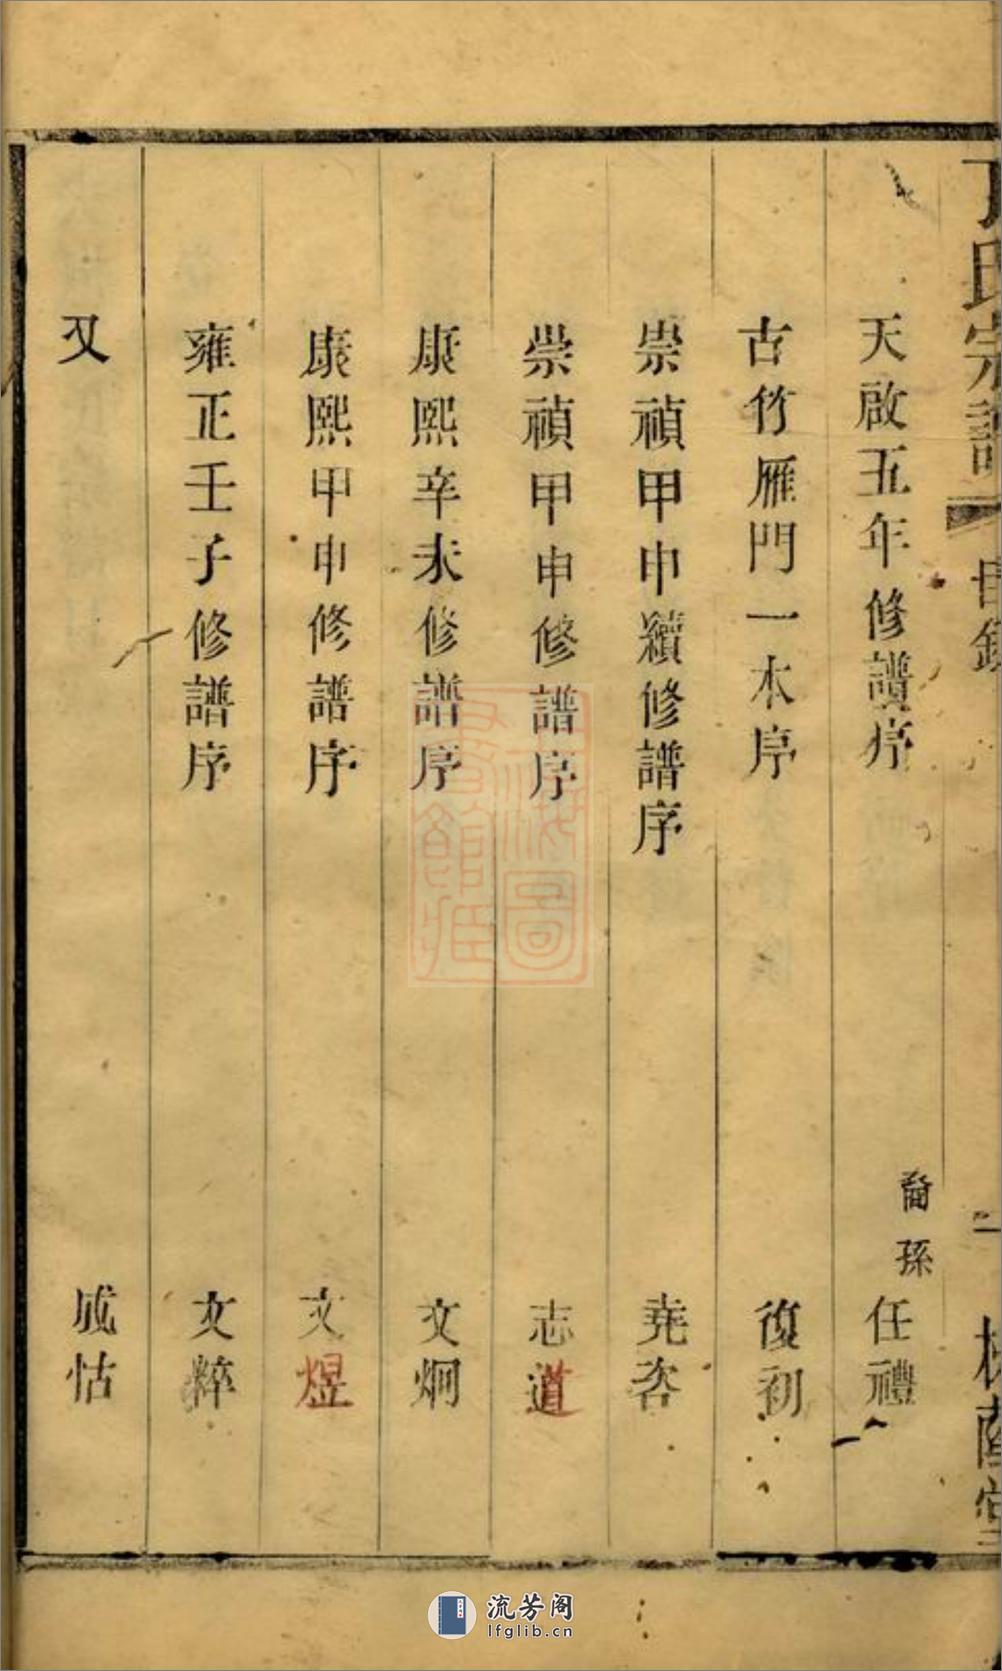 丁氏宗譜
目錄
一
蔭堂
天啟五年修譜序 裔孫 任禮
古竹雁門一本序 復初
崇禎甲申續修譜序 堯咨
崇禎甲申修譜序 志道
康熙辛未修譜序 文炯
康熙甲申修譜序 文煜
雍正壬子修譜序 文粹
又 成怙
上海圖書館藏
流芳阁
lfglib.cn